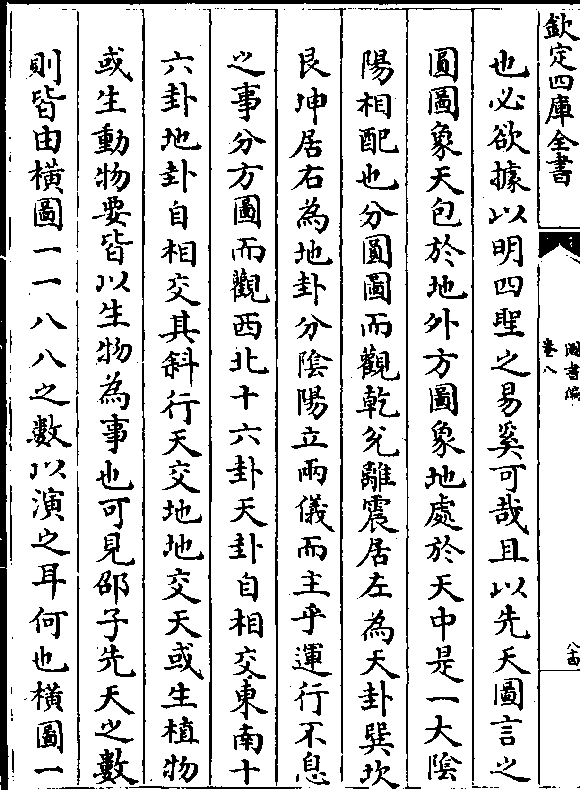 欽定四庫全書
圖書編
卷八
六十四
也必欲據以明四聖之易奚可哉且以先天圖言之
圓圖象天包於地外方圖象地處於天中是一大陰
陽相配也分圓圖而觀乾兊離震居左為天卦巽坎
艮坤居右為地卦分隂陽立兩儀而主乎運行不息
之事分方圖而觀西北十六卦天卦自相交東南十
六卦地卦自相交其斜行天交地地交天或生植物
或生動物要皆以生物為事也可見邵子先天之數
則皆由橫圖一一八八之數以演之耳何也橫圖一